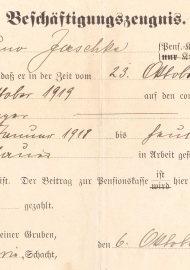 Beschäftigungszeugnis.
Jaschke
daß er in der Zeit vom 23. Oktob
tober 1919 auf den vor
Januar 1918 bis heu
in Arbeit gesta
ist. Der Beitrag zur Pensionskasse ist hier
wird
gezahlt.
einer Gruben, den 6. Oktob
Schacht,